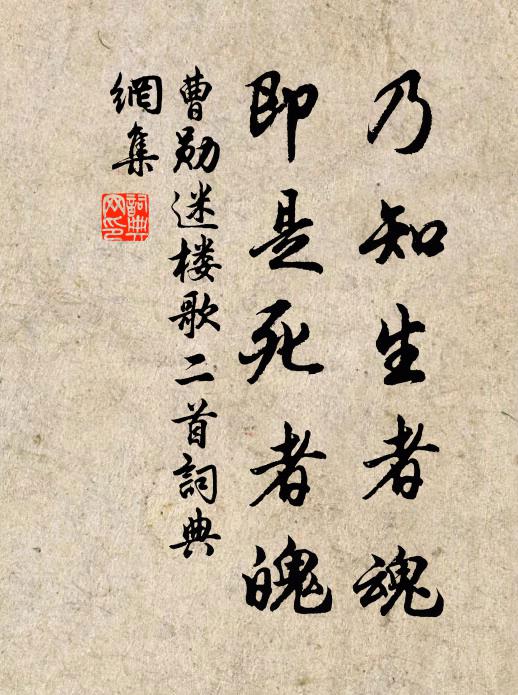 乃知生者魂
即是死者魄
曹勋迷楼歌二首詞典
網集
詞典
网印